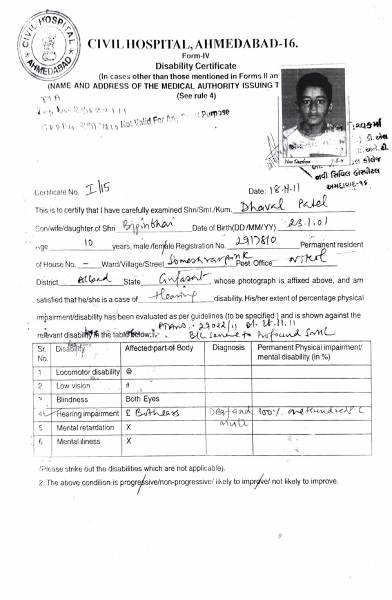 CIVIL HOSPITAL
AHMEDABAD
CIVIL HOSPITAL, AHMEDABAD-16.
Form-IV
Disability Certificate
(In cases other than those mentioned in Forms II an
(NAME AND ADDRESS OF THE MEDICAL AUTHORITY ISSUING T
(See rule 4)
Not Valid For Any Purpose
નવી સિવિલ હોસ્પીટલ
અમદાવાદ-૧૬
Certificate No. I/15 Date: 18.11.11
This is to certify that I have carefully examined Shri/Smt./Kum. Dhaval Patel
Son/wife/daughter of Shri Bipinbhai Date of Birth(DD/MM/YY) 23.1.01
Age 10 years, male/female Registration No. Permanent resident
of House No. - Ward/Village/Street Someshvarpark Post Office
District A'bad State Gujarat, whose photograph is affixed above, and am
satisfied that he/she is a case of Hearing disability. His/her extent of percentage physical
impairment/disability has been evaluated as per guidelines (to be specified) and is shown against the
relevant disability in the table below:
B/L severe to profound SNHL
Sr. No. Disability Affected part of Body Diagnosis Permanent Physical impairment/ mental disability (in %)
1 Locomotor disability @
2 Low vision #
3 Blindness Both Eyes
4 Hearing impairment £ Both ears Deaf and mute 100% one hundred
5 Mental retardation X
6 Mental illness X
(Please strike out the disabilities which are not applicable).
2. The above condition is progressive/non-progressive/ likely to improve/ not likely to improve.